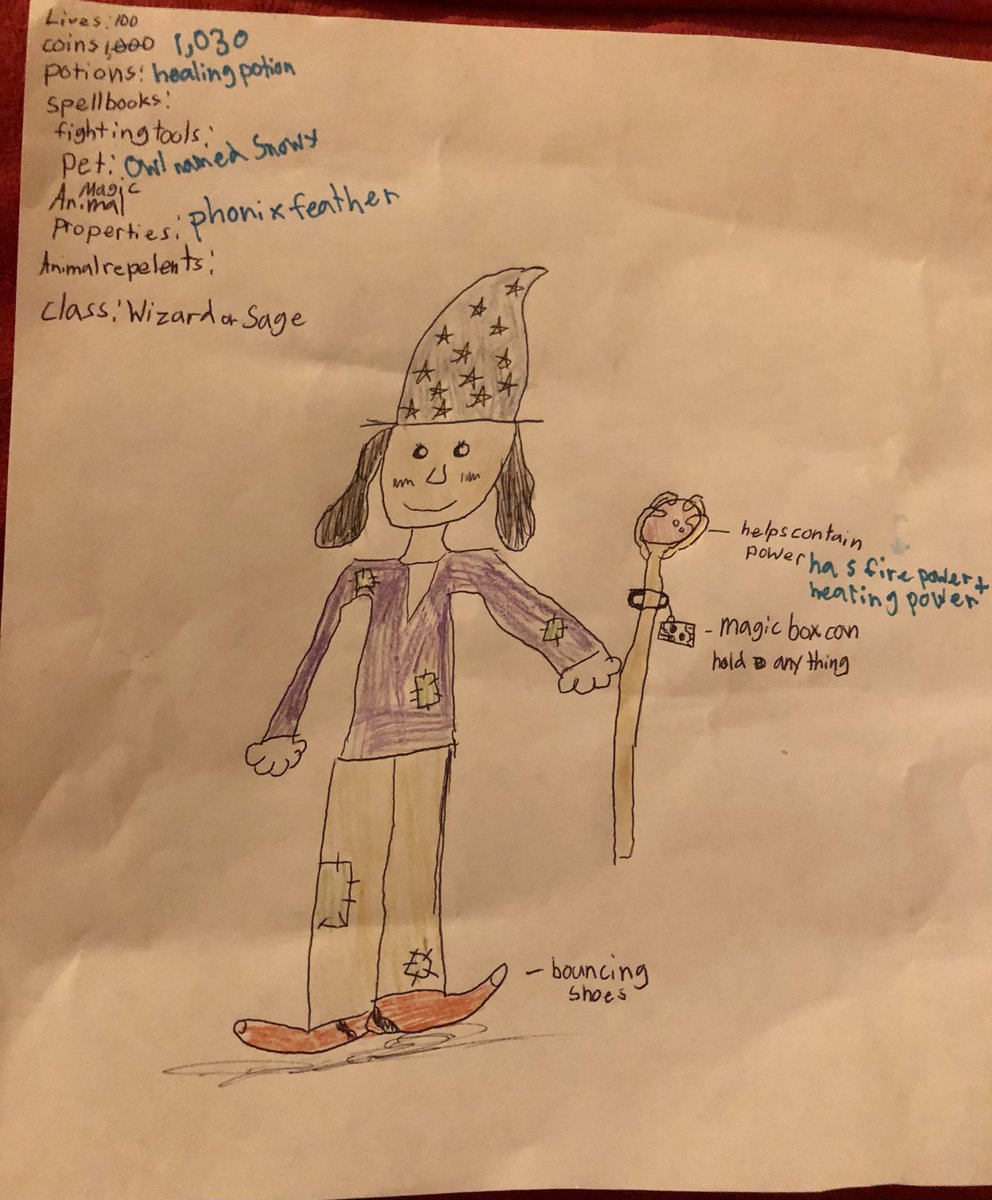 Lives: 100
coins 1,000 1,030
potions: healing potion
spellbooks:
fighting tools:
Pet: Owl named Snowy
Magic
Animal
Properties: phonix feather
Animal repelents:
class: Wizard or Sage
helps contain
power has fire power +
healing power
- magic box can
hold any thing
- bouncing
shoes